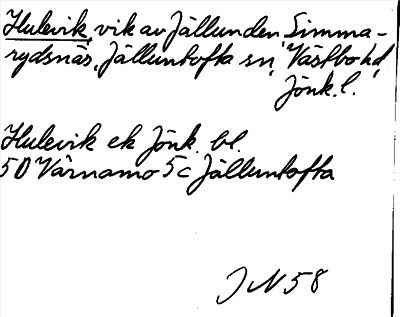 Hulevik, vik av Jällunden Simma-
rydsnäs, Jälluntofta sn, Västbo hd,
Jönk. l.
Hulevik ek Jönk. bl.
5D Värnamo 5c Jälluntofta
JN 58